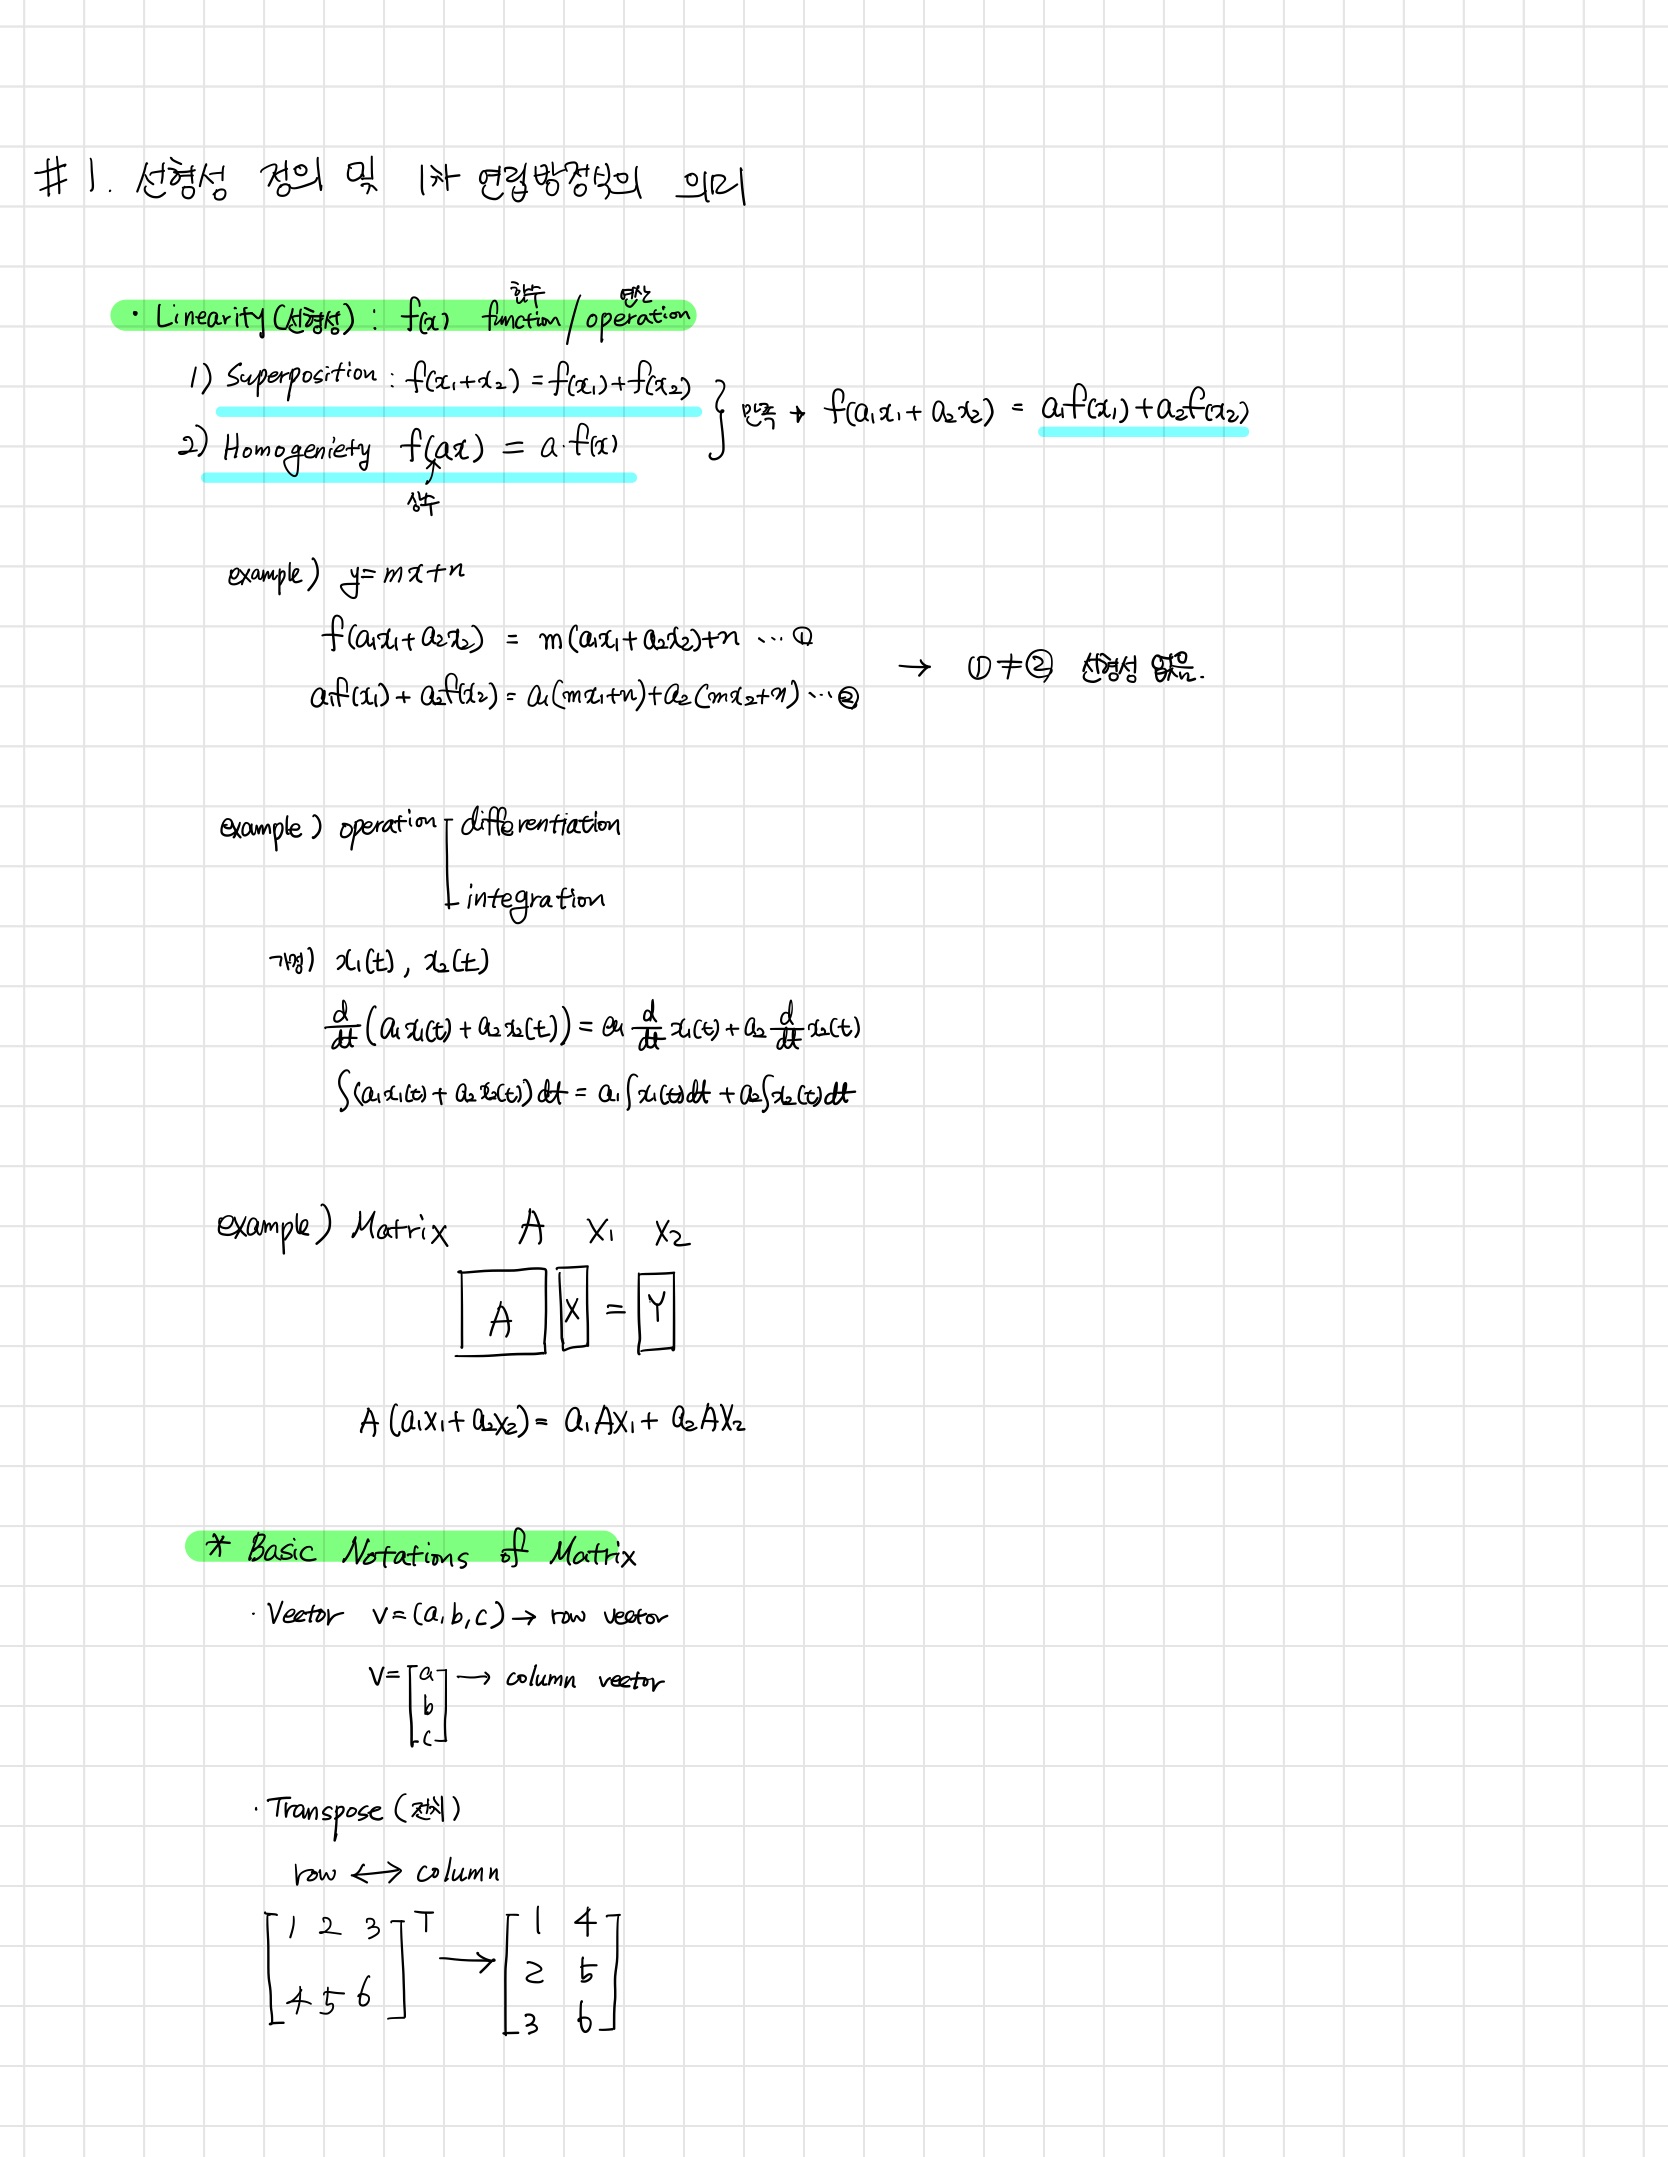 #1. 선형성 정의 및 1차 연립방정식의 의미
· Linearity(선형성) : f(x) function/operation
함수 연산
1) Superposition : f(x₁+x₂) = f(x₁)+f(x₂)
2) Homogeniety f(ax) = a·f(x)
상수
} 만족 → f(a₁x₁+a₂x₂) = a₁f(x₁)+a₂f(x₂)
example) y=mx+n
f(a₁x₁+a₂x₂) = m(a₁x₁+a₂x₂)+n ... ①
a₁f(x₁)+a₂f(x₂) = a₁(mx₁+n)+a₂(mx₂+n) ... ②
→ ①≠② 선형성 없음.
example) operation differentiation
integration
가정) x₁(t), x₂(t)
d/dt (a₁x₁(t)+a₂x₂(t)) = a₁ d/dt x₁(t)+a₂ d/dt x₂(t)
∫(a₁x₁(t)+a₂x₂(t))dt = a₁∫x₁(t)dt+a₂∫x₂(t)dt
example) Matrix A X₁ X₂
A X = Y
A(a₁X₁+a₂X₂) = a₁AX₁+a₂AX₂
* Basic Notations of Matrix
· Vector v=(a,b,c) → row vector
v= [a → column vector
b
c]
· Transpose (전치)
row ↔ column
[1 2 3 ]T → [1 4
2 5
4 5 6 3 6]